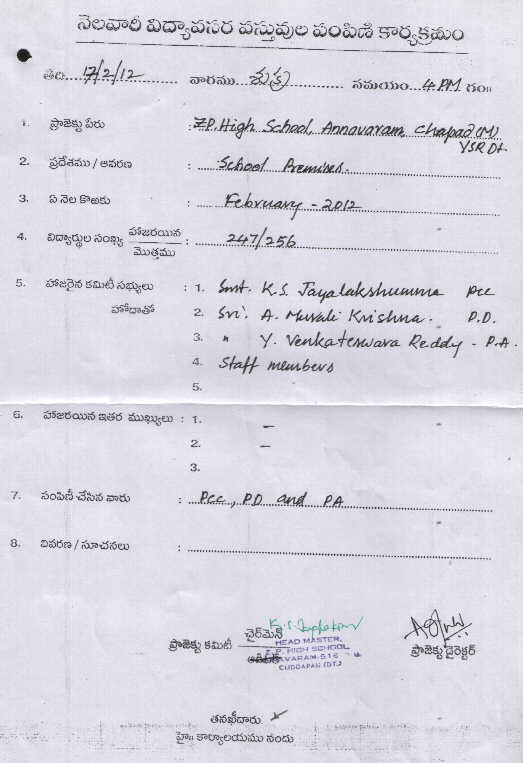 నెలవారీ విద్యావసర వస్తువుల పంపిణి కార్యక్రమం
తేది 17/2/12 వారము శుక్ర సమయం 4 PM గం॥
1. ప్రాజెక్టు పేరు : Z.P. High School, Annavaram, Chapad (M) YSR Dt
2. ప్రదేశము / ఆవరణ : School Premises.
3. ఏ నెల కొఱకు : February - 2012
4. విద్యార్థుల సంఖ్య హాజరయిన / మొత్తము : 247/256
5. హాజరైన కమిటీ సభ్యులు హోదాతో : 1. Smt. K.S. Jayalakshumma PCC
2. Sri. A. Murali Krishna. P.D.
3. " Y. Venkateswara Reddy - P.A.
4. Staff members
5.
6. హాజరయిన ఇతర ముఖ్యులు : 1. –
2. –
3.
7. పంపిణీ చేసిన వారు : PCC, PD and PA
8. వివరణ / సూచనలు :
ప్రాజెక్టు కమిటీ ఛైర్‌మెన్
HEAD MASTER,
Z.P. HIGH SCHOOL,
CUDDAPAH (DT.)
ప్రాజెక్టు డైరెక్టర్
తనఖీదారు
హై॥ కార్యాలయము నందు